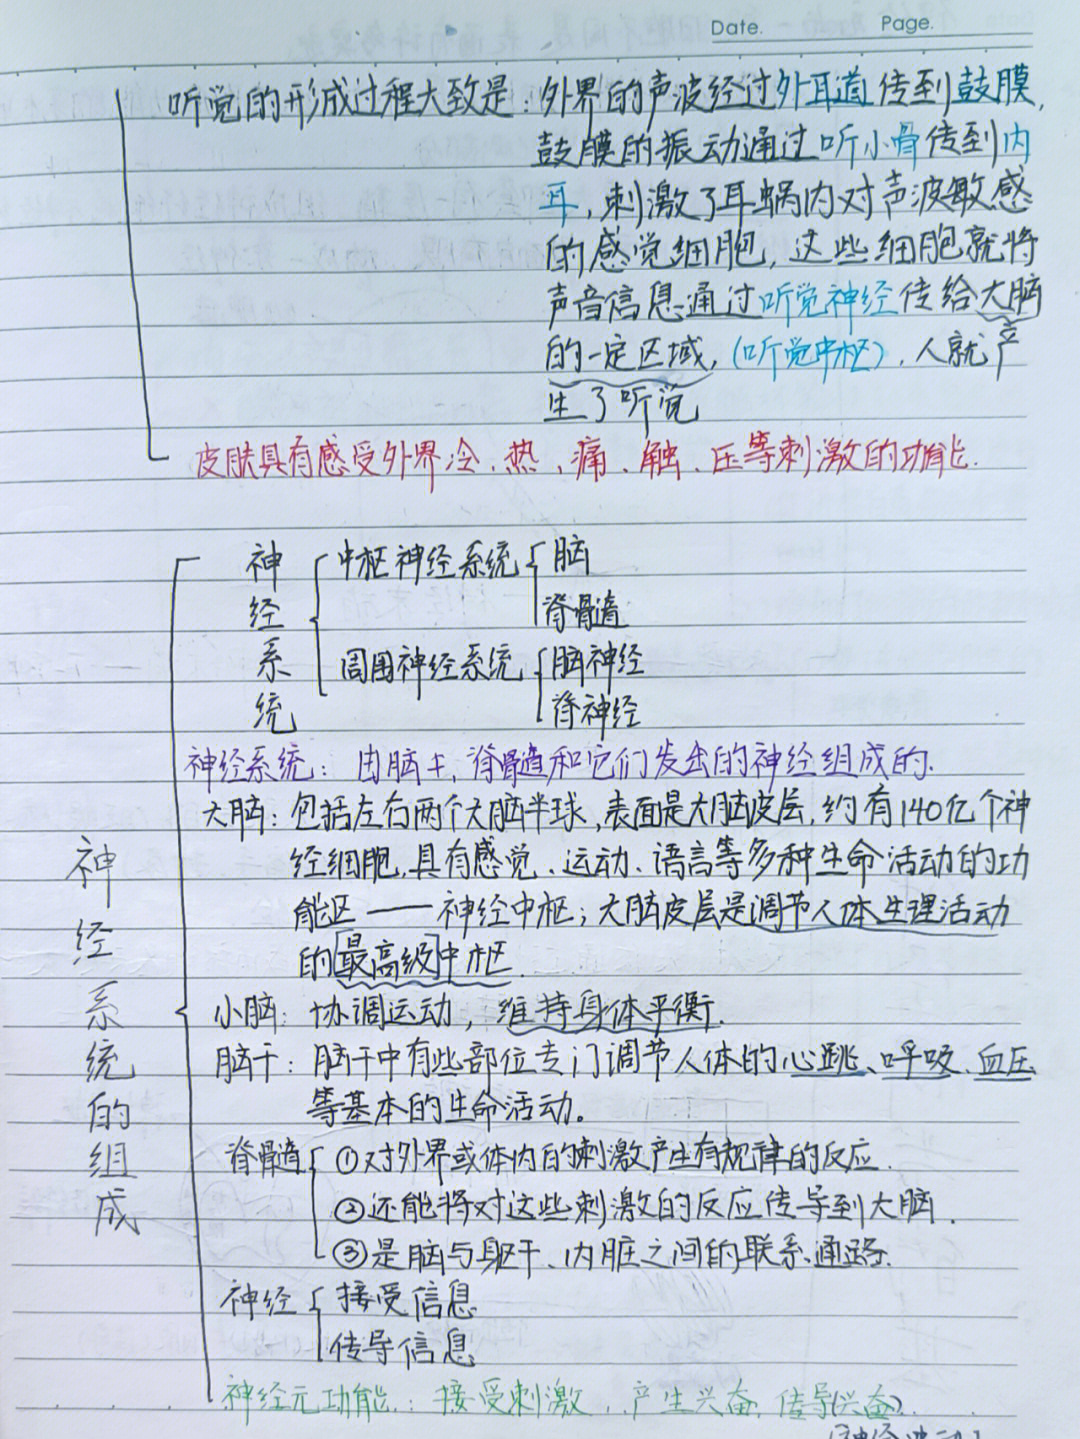 Date.    Page.
听觉的形成过程大致是：外界的声波经过外耳道传到鼓膜，
鼓膜的振动通过听小骨传到内
耳，刺激了耳蜗内对声波敏感
的感觉细胞，这些细胞就将
声音信息通过听觉神经传给大脑
的一定区域，（听觉中枢），人就产
生了听觉
皮肤具有感受外界冷、热、痛、触、压等刺激的功能.
神经系统的组成
神经系统
中枢神经系统 脑
脊髓
周围神经系统 脑神经
脊神经
神经系统：由脑、脊髓和它们发出的神经组成的.
大脑：包括左右两个大脑半球，表面是大脑皮层，约有140亿个神
经细胞，具有感觉、运动、语言等多种生命活动的功
能区——神经中枢；大脑皮层是调节人体生理活动
的[最高级]中枢.
小脑：协调运动，维持身体平衡.
脑干：脑干中有些部位专门调节人体的心跳、呼吸、血压
等基本的生命活动。
脊髓 ①对外界或体内的刺激产生有规律的反应.
②还能将对这些刺激的反应传导到大脑.
③是脑与躯干、内脏之间的联系通路.
神经 接受信息
传导信息
神经元功能：接受刺激，产生兴奋，传导(兴奋)